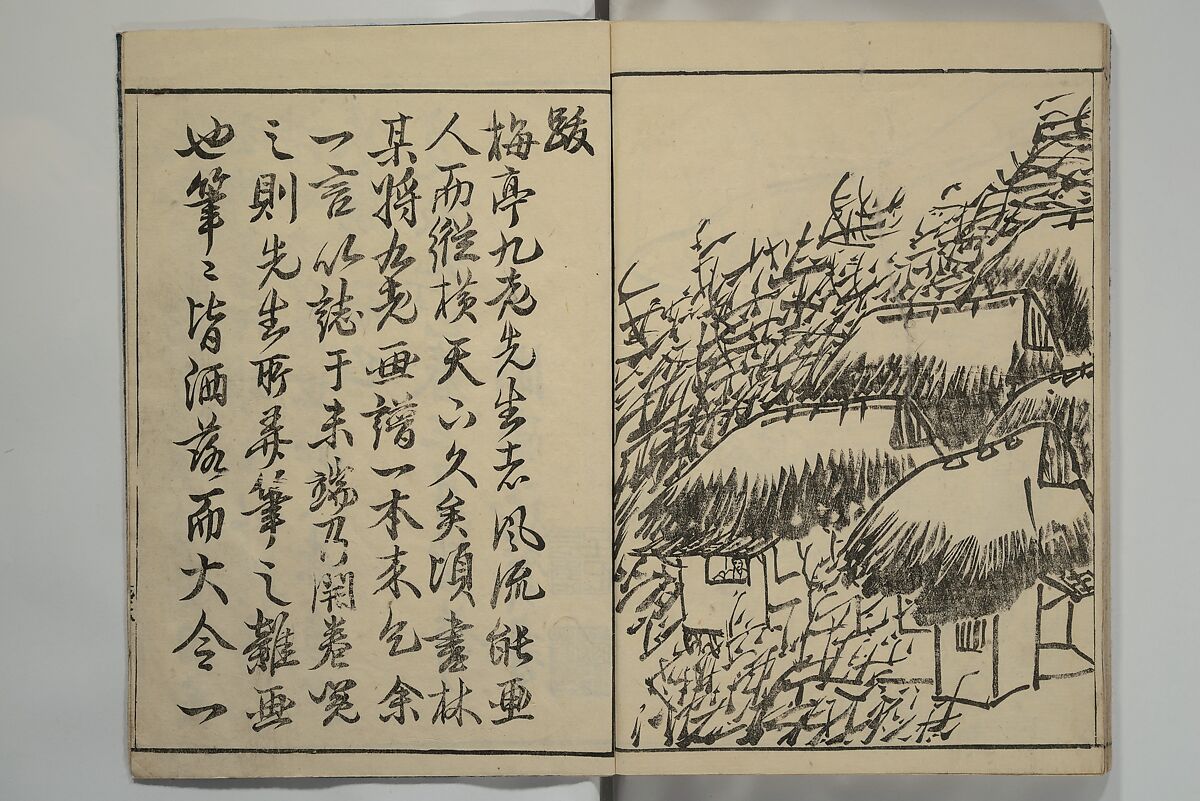 跋
梅亭九老先生者風流能画
人而縦横天下久矣頃書林
某将九老画譜一本来乞余
一言以誌于末端乃開巻覧
之則先生所弄筆之雑画
也筆〻皆洒落而大含一